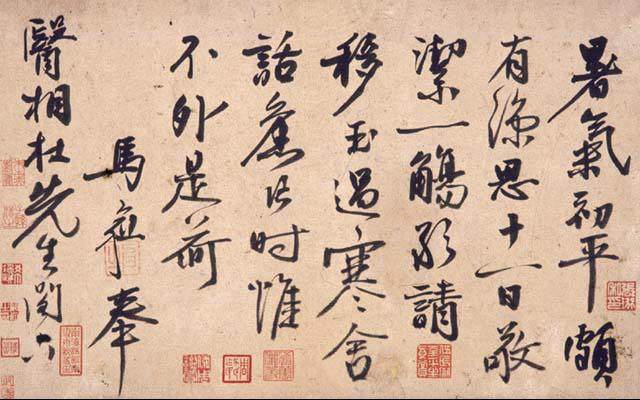 暑氣初平頗
有涼思十一日敬
潔一觴敢請
移玉過寒舍
話舊片时惟
不外是荷
馬愈奉
醫相杜先生閣下